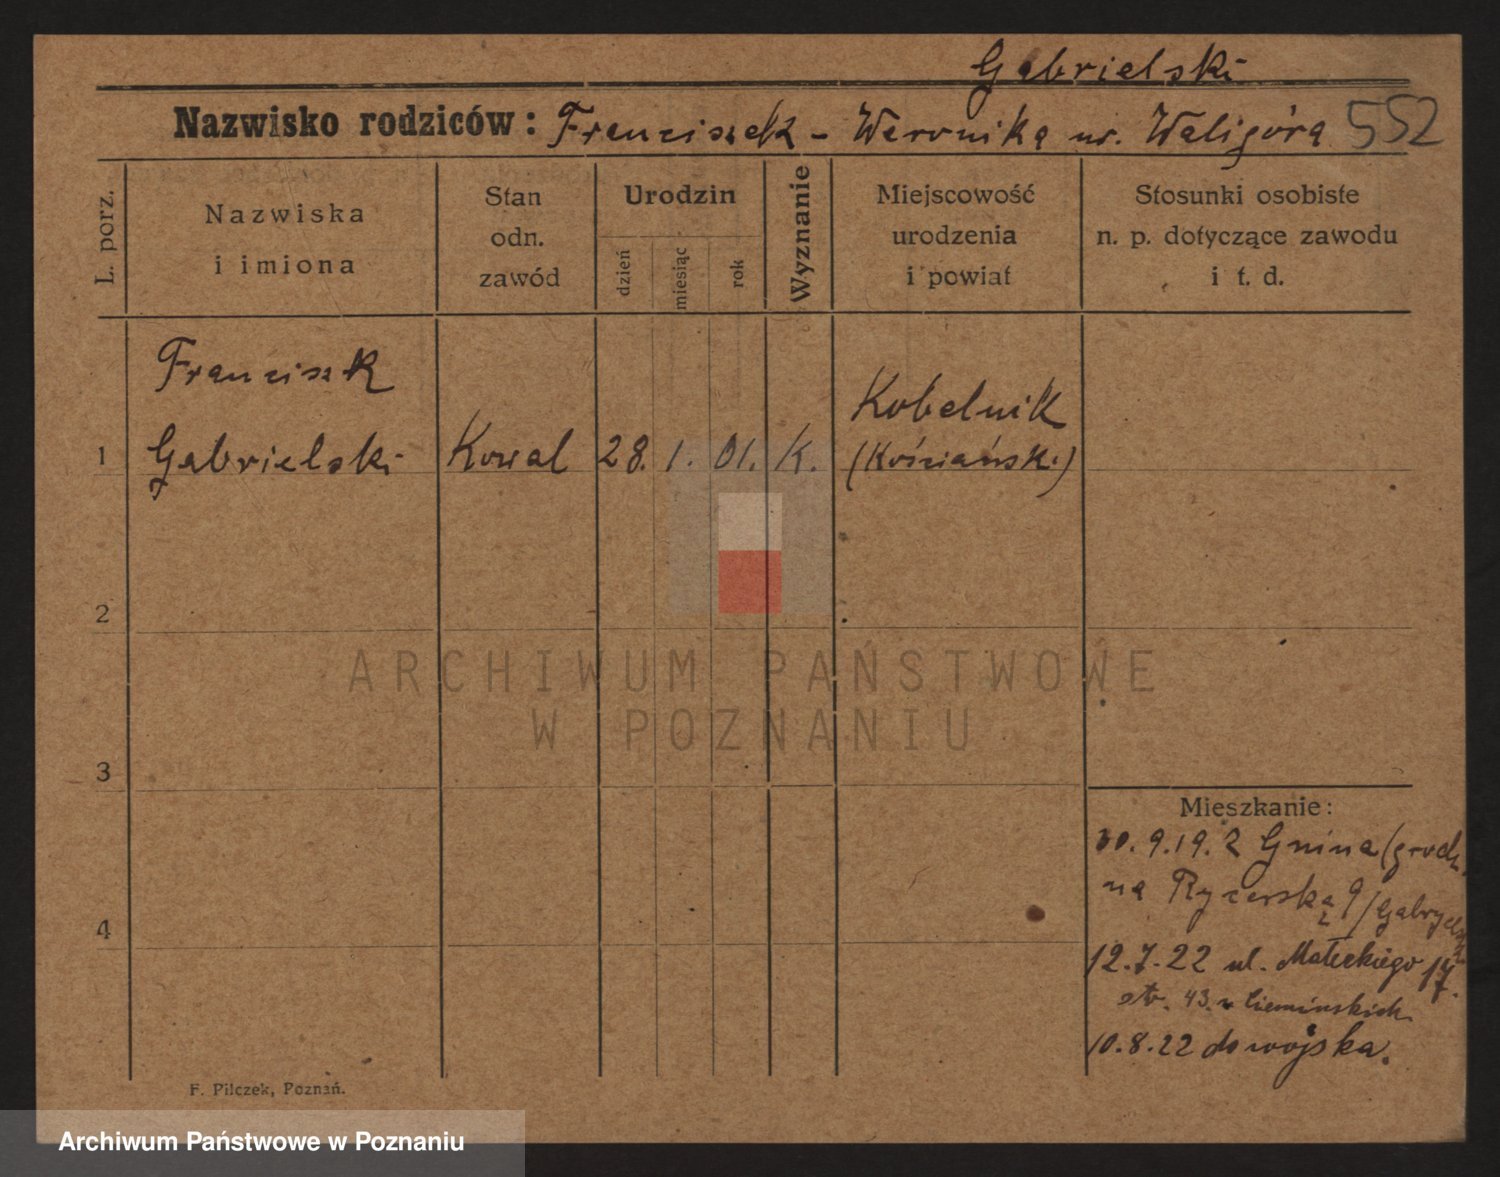 Gabrielski
Nazwisko rodziców: Franciszek - Weronika ur. Waligóra 552
L. porz.
Nazwiska
i imiona
Stan
odn.
zawód
Urodzin
dzień
miesiąc
rok
Wyznanie
Miejscowość
urodzenia
i powiat
Stosunki osobiste
n. p. dotyczące zawodu
i t. d.
Franciszk
1 Gabrielski Kowal 28. 1. 01. K.
Kobelnik
(Kościańsk.)
2
ARCHIWUM PAŃSTWOWE
W POZNANIU
3
Mieszkanie:
30.9.19. z Gnina (grodz.
na Rycerską 9/
4
12.7.22 ul. Małeckiego 17.
str. 43. u Ciemińskich.
10.8.22 do wojska.
F. Pilczek, Poznań.
Archiwum Państwowe w Poznaniu